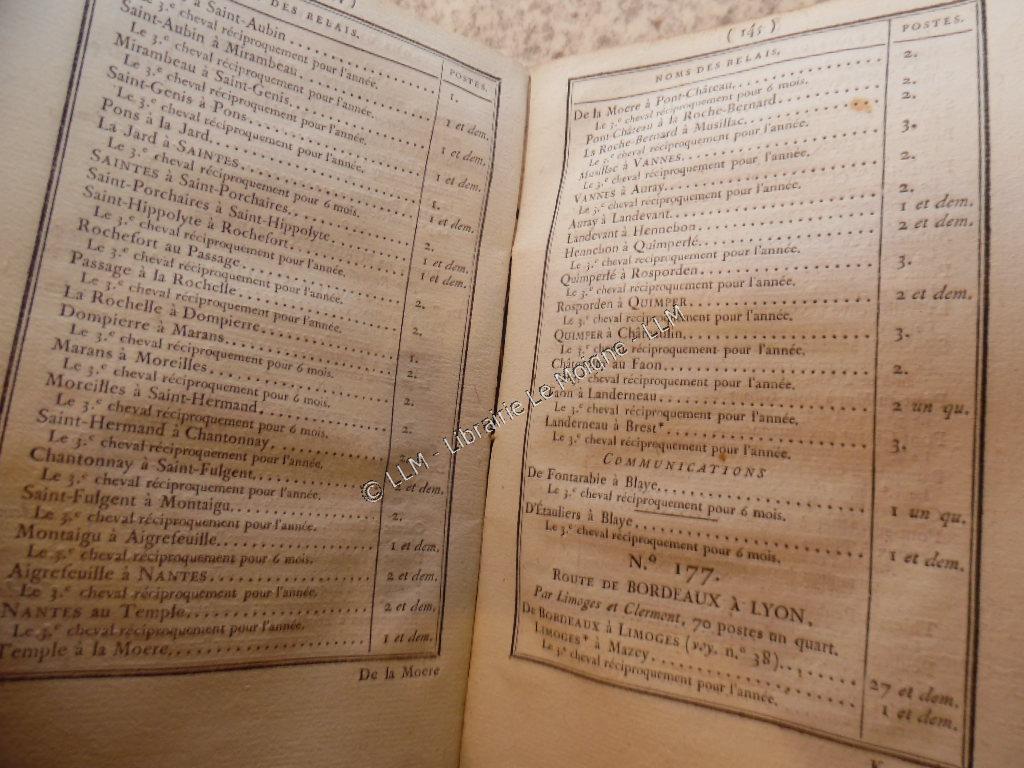 DES RELAIS.
POSTES.
à Saint-Aubin....
Le 3.e cheval réciproquement pour l'année.
1.
Saint-Aubin à Mirambeau....
Le 3.e cheval réciproquement pour l'année.
1 et dem.
Mirambeau à Saint-Genis....
Le 3.e cheval réciproquement pour l'année.
1 et dem.
Saint-Genis à Pons....
Le 3.e cheval réciproquement pour l'année.
1 et dem.
Pons à la Jard....
1.
La Jard à SAINTES....
Le 3.e cheval réciproquement pour 6 mois.
1 et dem.
SAINTES à Saint-Porchaires....
2.
Saint-Porchaires à Saint-Hippolyte....
1 et dem.
Saint-Hippolyte à Rochefort....
Le 3.e cheval réciproquement pour l'année.
1 et dem.
Rochefort au Passage....
Le 3.e cheval réciproquement pour l'année.
2.
Passage à la Rochelle....
Le 3.e cheval réciproquement pour l'année.
2.
La Rochelle à Dompierre....
1.
Dompierre à Marans....
Le 3.e cheval réciproquement pour 6 mois.
2.
Marans à Moreilles....
Le 3.e cheval réciproquement pour 6 mois.
2.
Moreilles à Saint-Hermand....
Le 3.e cheval réciproquement pour 6 mois.
2.
Saint-Hermand à Chantonnay....
Le 3.e cheval réciproquement pour l'année.
2.
Chantonnay à Saint-Fulgent....
Le 3.e cheval réciproquement pour l'année.
2 et dem.
Saint-Fulgent à Montaigu....
Le 3.e cheval réciproquement pour l'année.
2.
Montaigu à Aigrefeuille....
Le 3.e cheval réciproquement pour 6 mois.
1 et dem.
Aigrefeuille à NANTES....
Le 3.e cheval réciproquement pour l'année.
2 et dem.
NANTES au Temple....
Le 3.e cheval réciproquement pour l'année.
2 et dem.
Temple à la Moere....
1 et dem.
De la Moere
( 145 )
NOMS DES RELAIS.
POSTES.
De la Moere à Pont-Château....
Le 3.e cheval réciproquement pour 6 mois.
2.
Pont-Château à la Roche-Bernard....
2.
La Roche-Bernard à Musillac....
Le 3.e cheval réciproquement pour l'année.
2.
Musillac à VANNES....
Le 3.e cheval réciproquement pour l'année.
3.
VANNES à Auray....
Le 3.e cheval réciproquement pour l'année.
2.
Auray à Landevant....
2.
Landevant à Hennebon....
1 et dem.
Hennebon à Quimperlé....
Le 3.e cheval réciproquement pour l'année.
2 et dem.
Quimperlé à Rosporden....
Le 3.e cheval réciproquement pour l'année.
3.
Rosporden à QUIMPER....
Le 3.e cheval réciproquement pour l'année.
2 et dem.
QUIMPER à Châteaulin....
Le 3.e cheval réciproquement pour l'année.
3.
Châteaulin au Faon....
Le 3.e cheval réciproquement pour l'année.
2.
Faon à Landerneau....
Le 3.e cheval réciproquement pour l'année.
2 un qu.
Landerneau à Brest*....
Le 3.e cheval réciproquement pour l'année.
3.
COMMUNICATIONS
De Fontarabie à Blaye....
Le 3.e cheval réciproquement pour 6 mois.
1 un qu.
D'Étauliers à Blaye....
Le 3.e cheval réciproquement pour 6 mois.
1 et dem.
N.o 177.
ROUTE DE BORDEAUX À LYON,
Par Limoges et Clermont, 70 postes un quart.
De BORDEAUX à LIMOGES (voy. n.o 38)....
27 et dem.
LIMOGES* à Mazey....
Le 3.e cheval réciproquement pour l'année.
1 et dem.
K
© LLM - Librairie Le Moigne - LLM